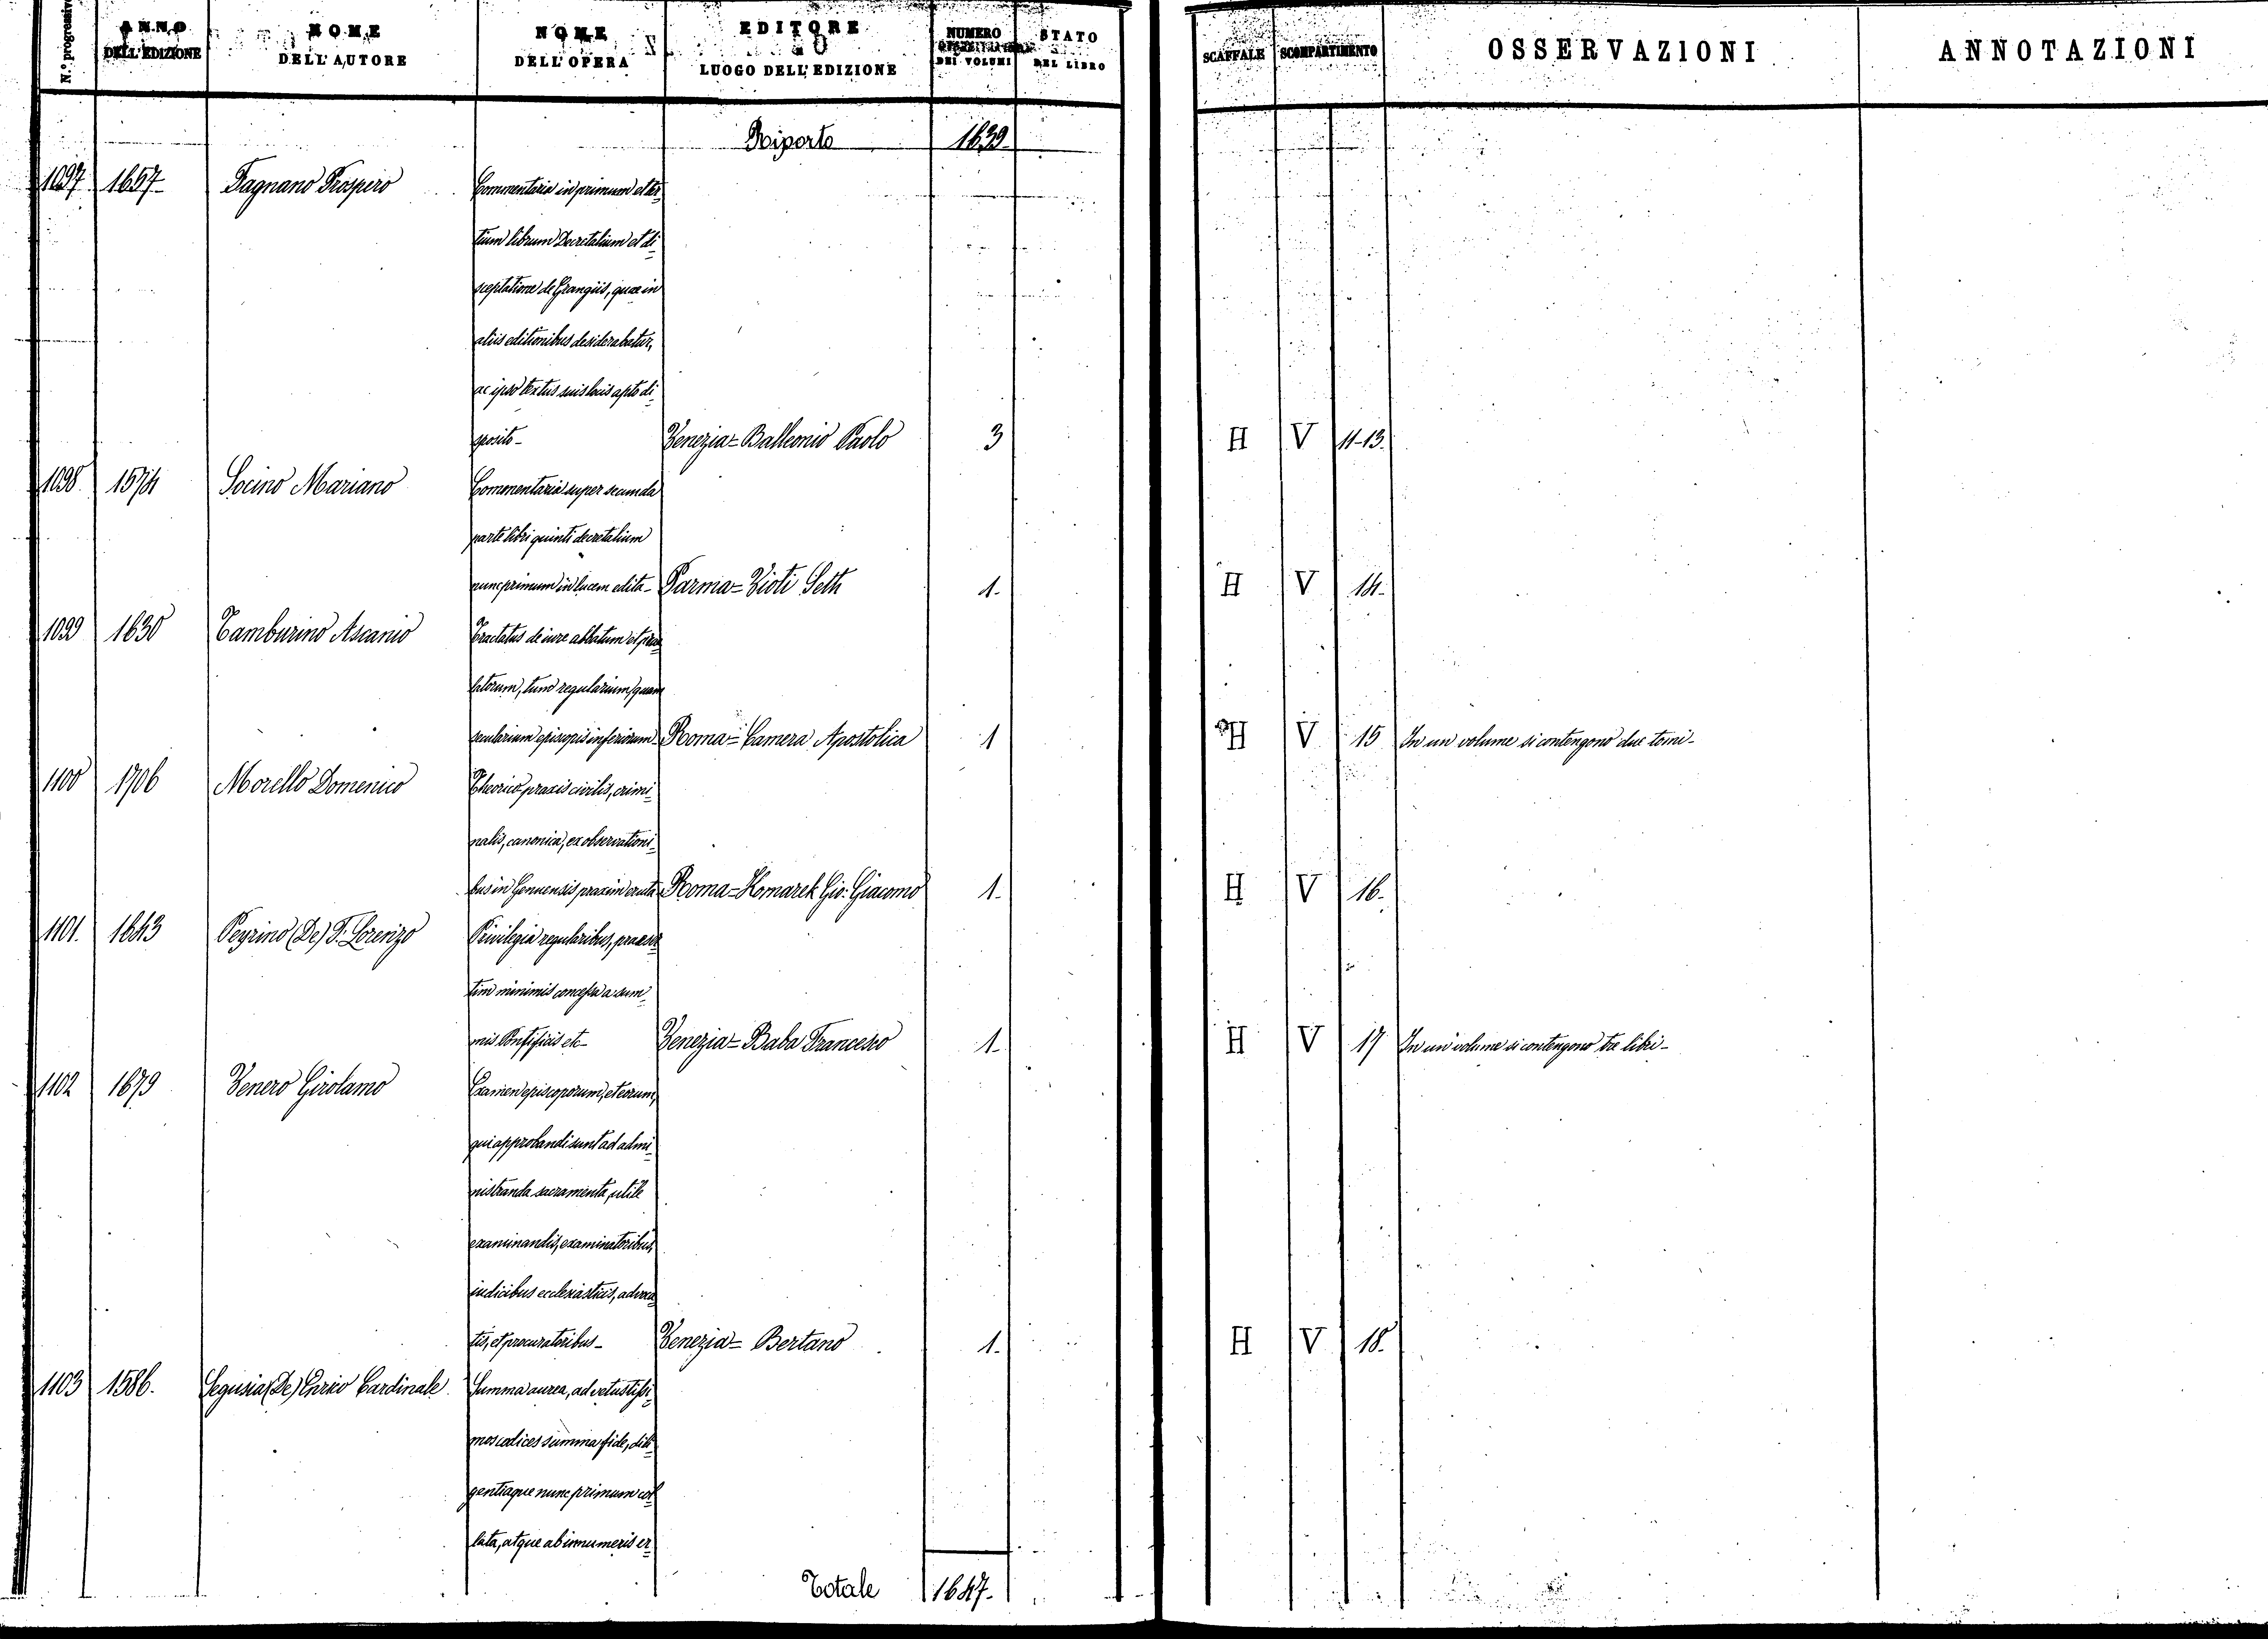 N.° progressivo
ANNO DELL' EDIZIONE
NOME DELL' AUTORE
NOME DELL' OPERA
EDITORE O LUOGO DELL' EDIZIONE
NUMERO DEI VOLUMI
STATO DEL LIBRO
SCAFFALE
SCOMPARTIMENTO
OSSERVAZIONI
ANNOTAZIONI
Riporto 1639
1097 1657 Fagnano Prospero Commentaria in primum et ter
tium librum Decretalium et di
sceptatione de Grangiis, quae in
aliis editionibus desiderabatur,
ac ipso textus suis locis apto di
sposito- Venezia= Balleonio Paolo 3 H V 11-13.
1098. 1574 Socino Mariano Commentaria super secunda
parte libri quinti decretalium
nunc primum in lucem edita- Parma= Vioti Seth 1. H V 14.
1099 1630 Tamburino Ascanio Tractatus de iure abbatum et prae
latorum, tum regularium, quam
secularium episcopis inferiorum- Roma= Camera Apostolica 1 H V 15 In un volume si contengono due tomi-
1100 1706 Morello Domenico Theorico praxis civilis, crimi
nalis, canonica, ex observationi
bus in Genuensis praxim eruta Roma= Komarek Gio: Giacomo 1. H V 16.
1101. 1643 Peyrino (De) F. Lorenzo Privilegia regularibus, praeser
tim minimis concessa a sum
mis Pontificis etc- Venezia= Baba Francesco 1. H V 17 In un volume si contengono tre libri-
1102 1679 Venero Girolamo Examen episcoporum, et eorum,
qui approbandi sunt ad admi
nistranda sacramenta, utile
examinandis, examinatoribus,
iudicibus ecclesiasticis, advoca
tis, et procuratoribus- Venezia= Bertano 1. H V 18.
1103 1586. Segusia (De) Enrico Cardinale. Summa aurea, ad vetustissi
mos codices summa fide, dili
gentiaque nunc primum col
lata, atque ab innumeris er
Totale 1647.